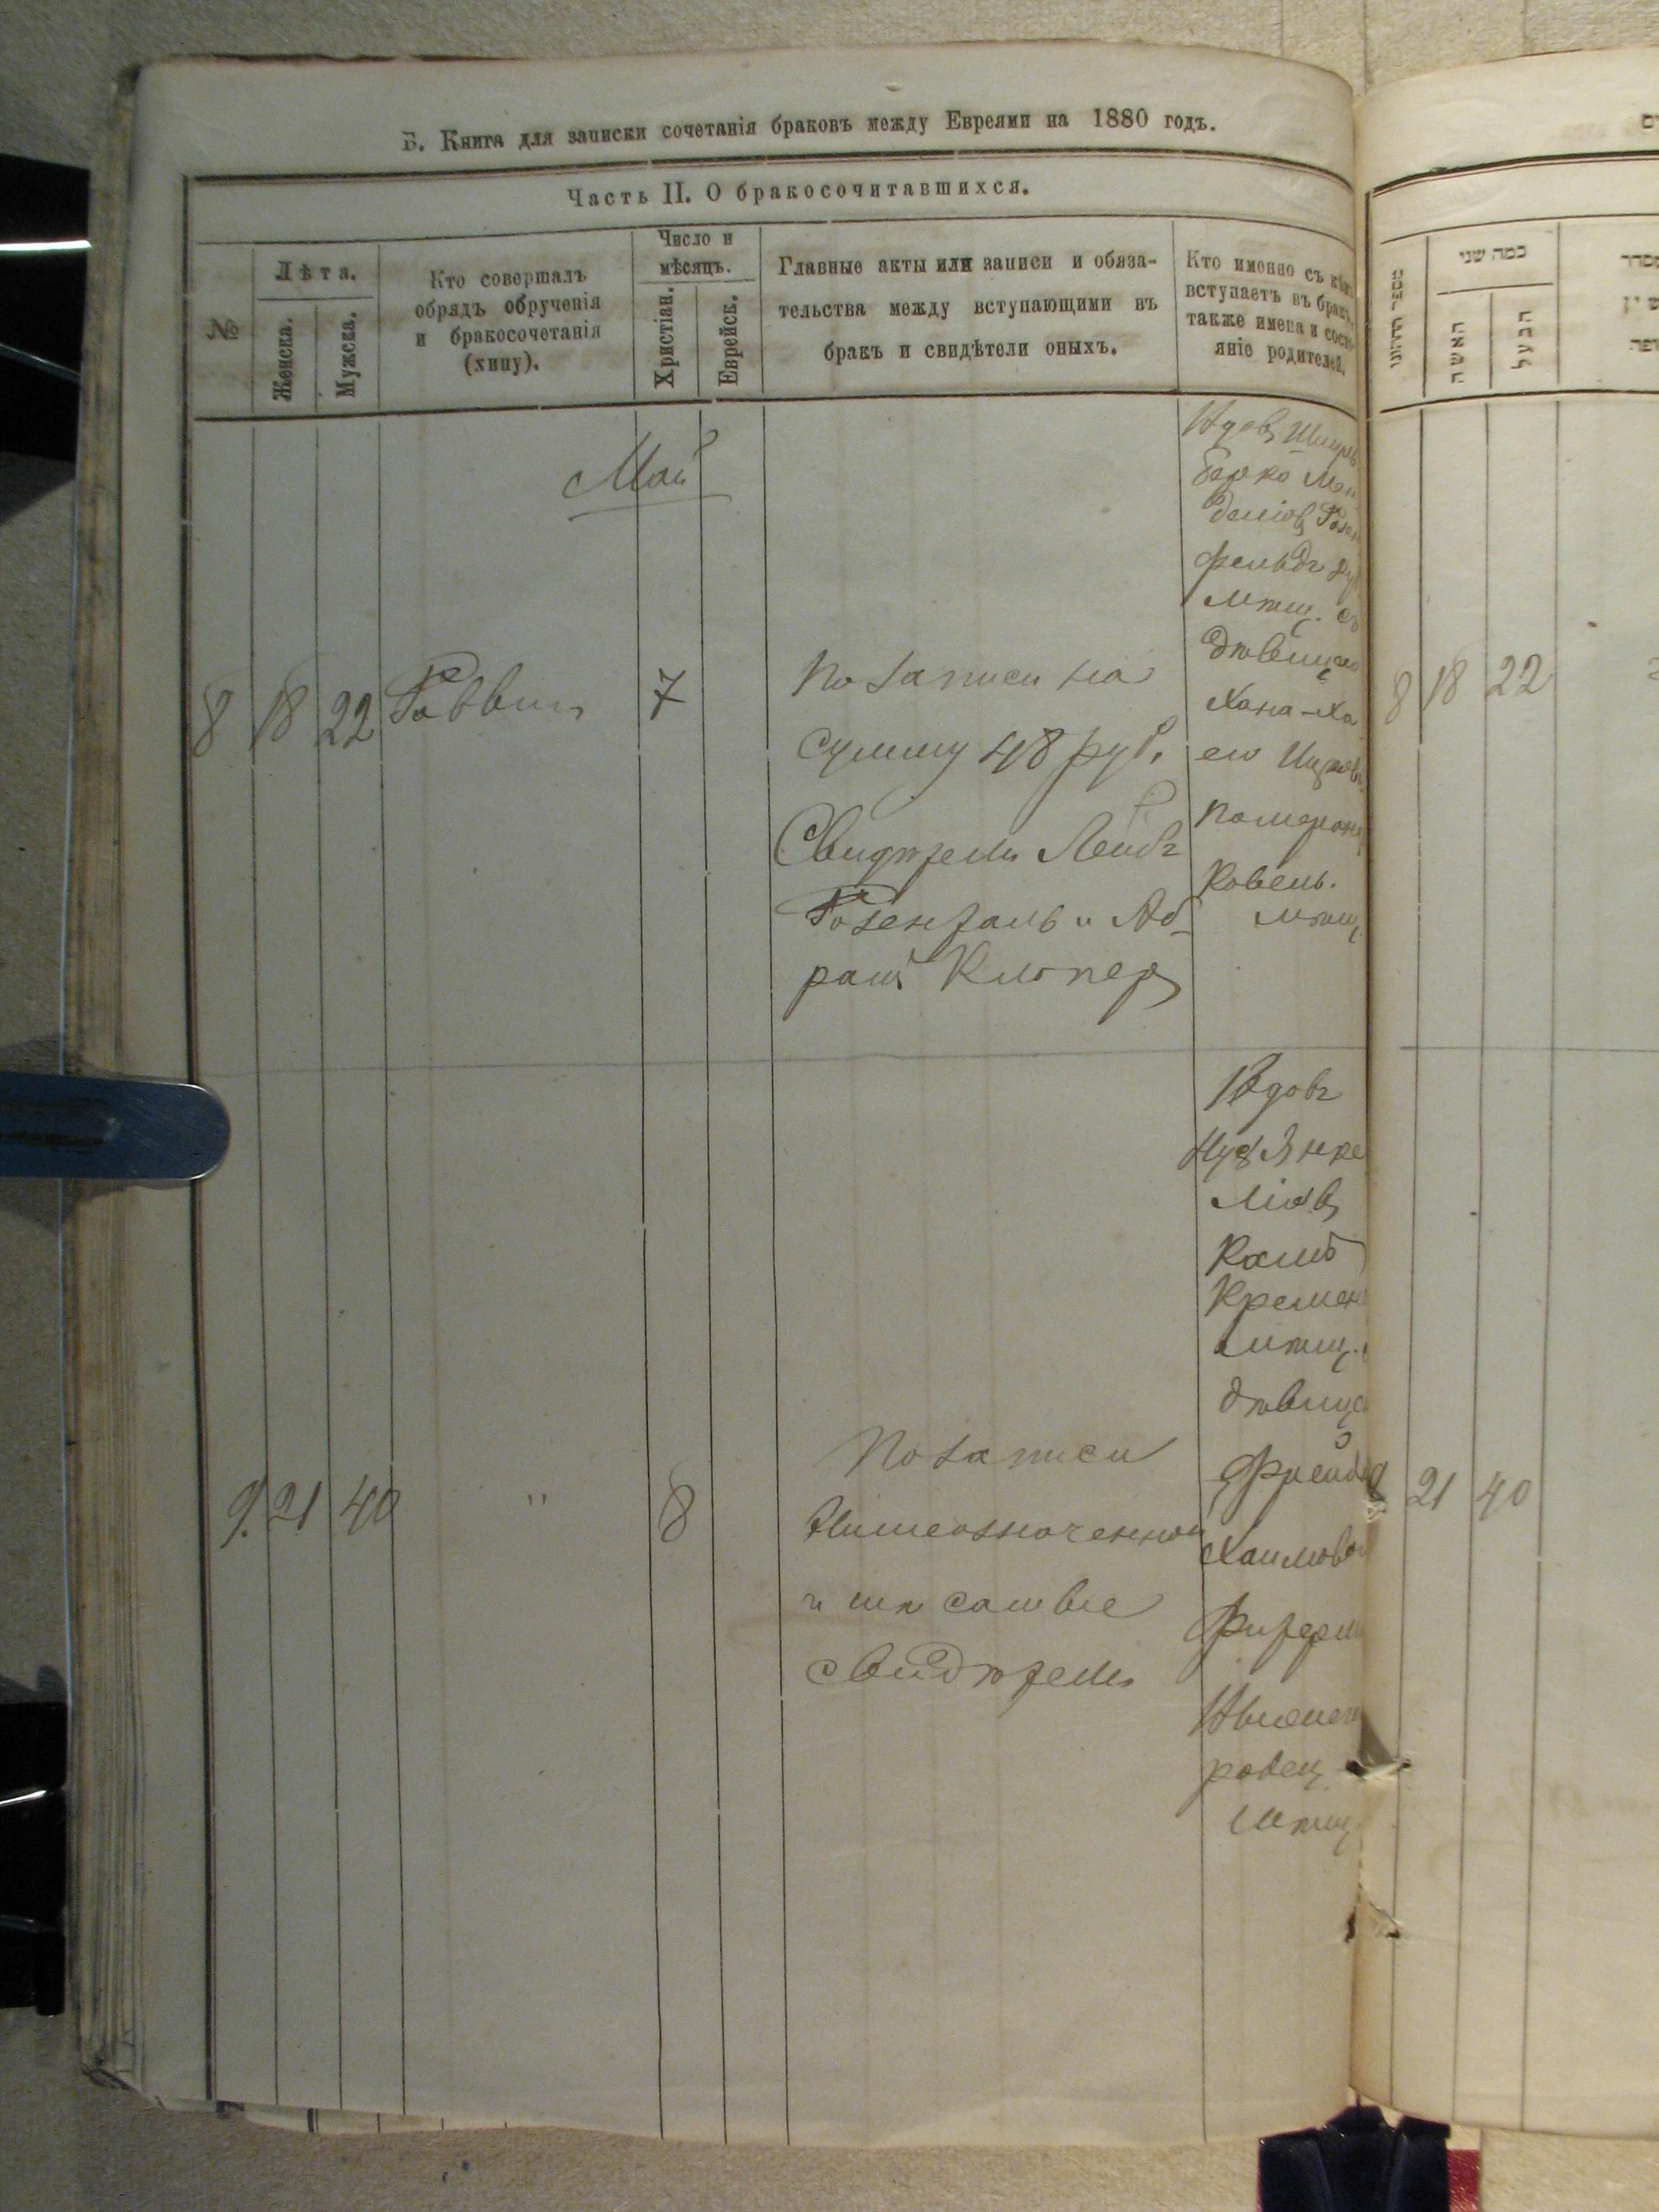 Б. Книга для записки сочетанія браковъ между Евреями на 1880 годъ.
Часть II. О бракосочитавшихся.
№
Лѣта.
Женска.
Мужска.
Кто совершалъ
обрядъ обрученія
и бракосочетанія
(хипу).
Число и
мѣсяцъ.
Христіан.
Еврейск.
Главные акты или записи и обяза-
тельства между вступающими въ
бракъ и свидѣтели оныхъ.
Кто именно съ кѣмъ
вступаетъ въ бракъ,
также имена и состо-
яніе родителей.
Май
8 18 22 Раввинъ 7
По записи на
сумму 48 руб.
Свидѣтели Лейбъ
Розенталь и Аб-
рамъ Клѣперъ
Вдовъ
Берко Мен
деліовъ Розен
фельдъ
мѣщ. съ
дѣвицею
Хана-Ха
ею Ицков
Померан
Ковель.
мѣщ.
9. 21 40 " 8
По записи
вышеозначенной
и тѣ самые
свидѣтели
Вдовъ
Нус Янке
ліовъ
Кацъ
Кремен
мѣщ.
дѣвица
Фрейда
Хаимова
Вишнего
родец
мѣщ.
מספר החתונו
כמה שני
האשה
הבעל
8 18 22
9 21 40